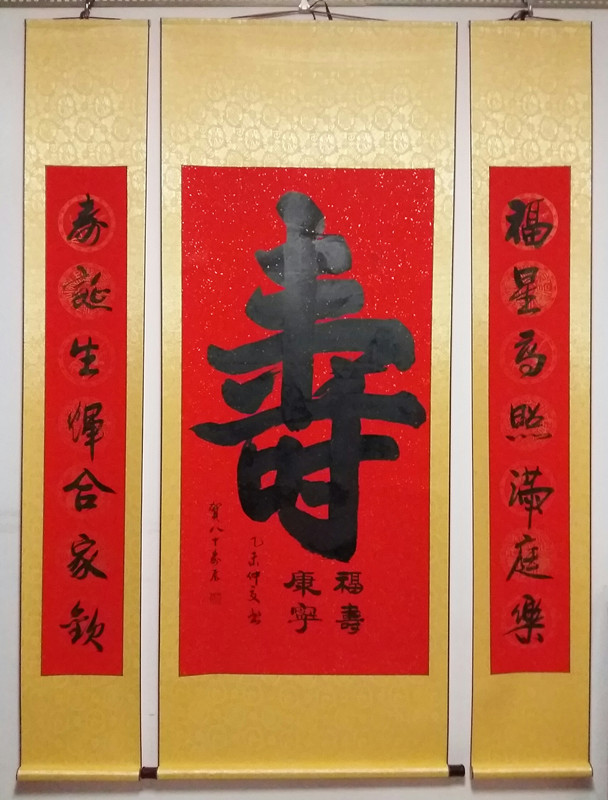 福星高照滿庭樂
寿
福壽
康寧
乙未仲夏書
賀八十寿辰
寿誕生輝合家歡